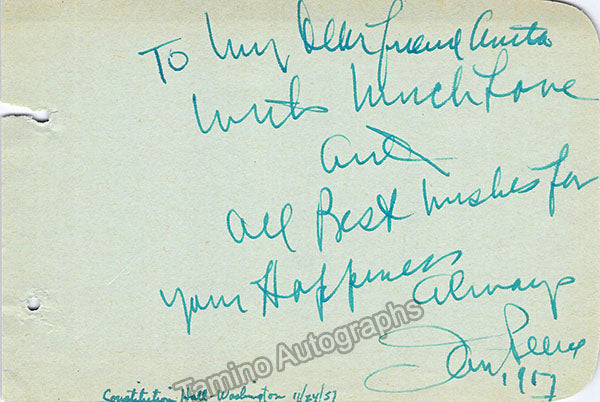 To my Dear friend Anita
with much Love
and
all Best wishes for
your Happiness
always
Jan Peerce
1957
Constitution Hall - Washington 11/24/57
Tamino Autographs